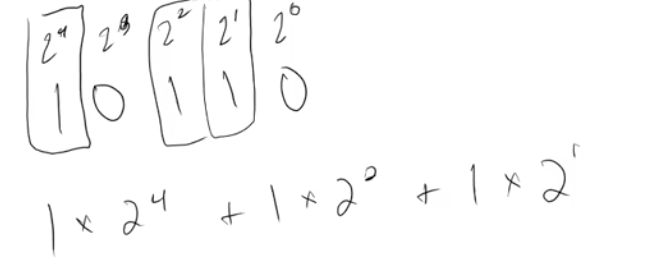 2⁴ 2³ 2² 2¹ 2⁰
1 0 1 1 0
1 × 2⁴ + 1 × 2² + 1 × 2¹